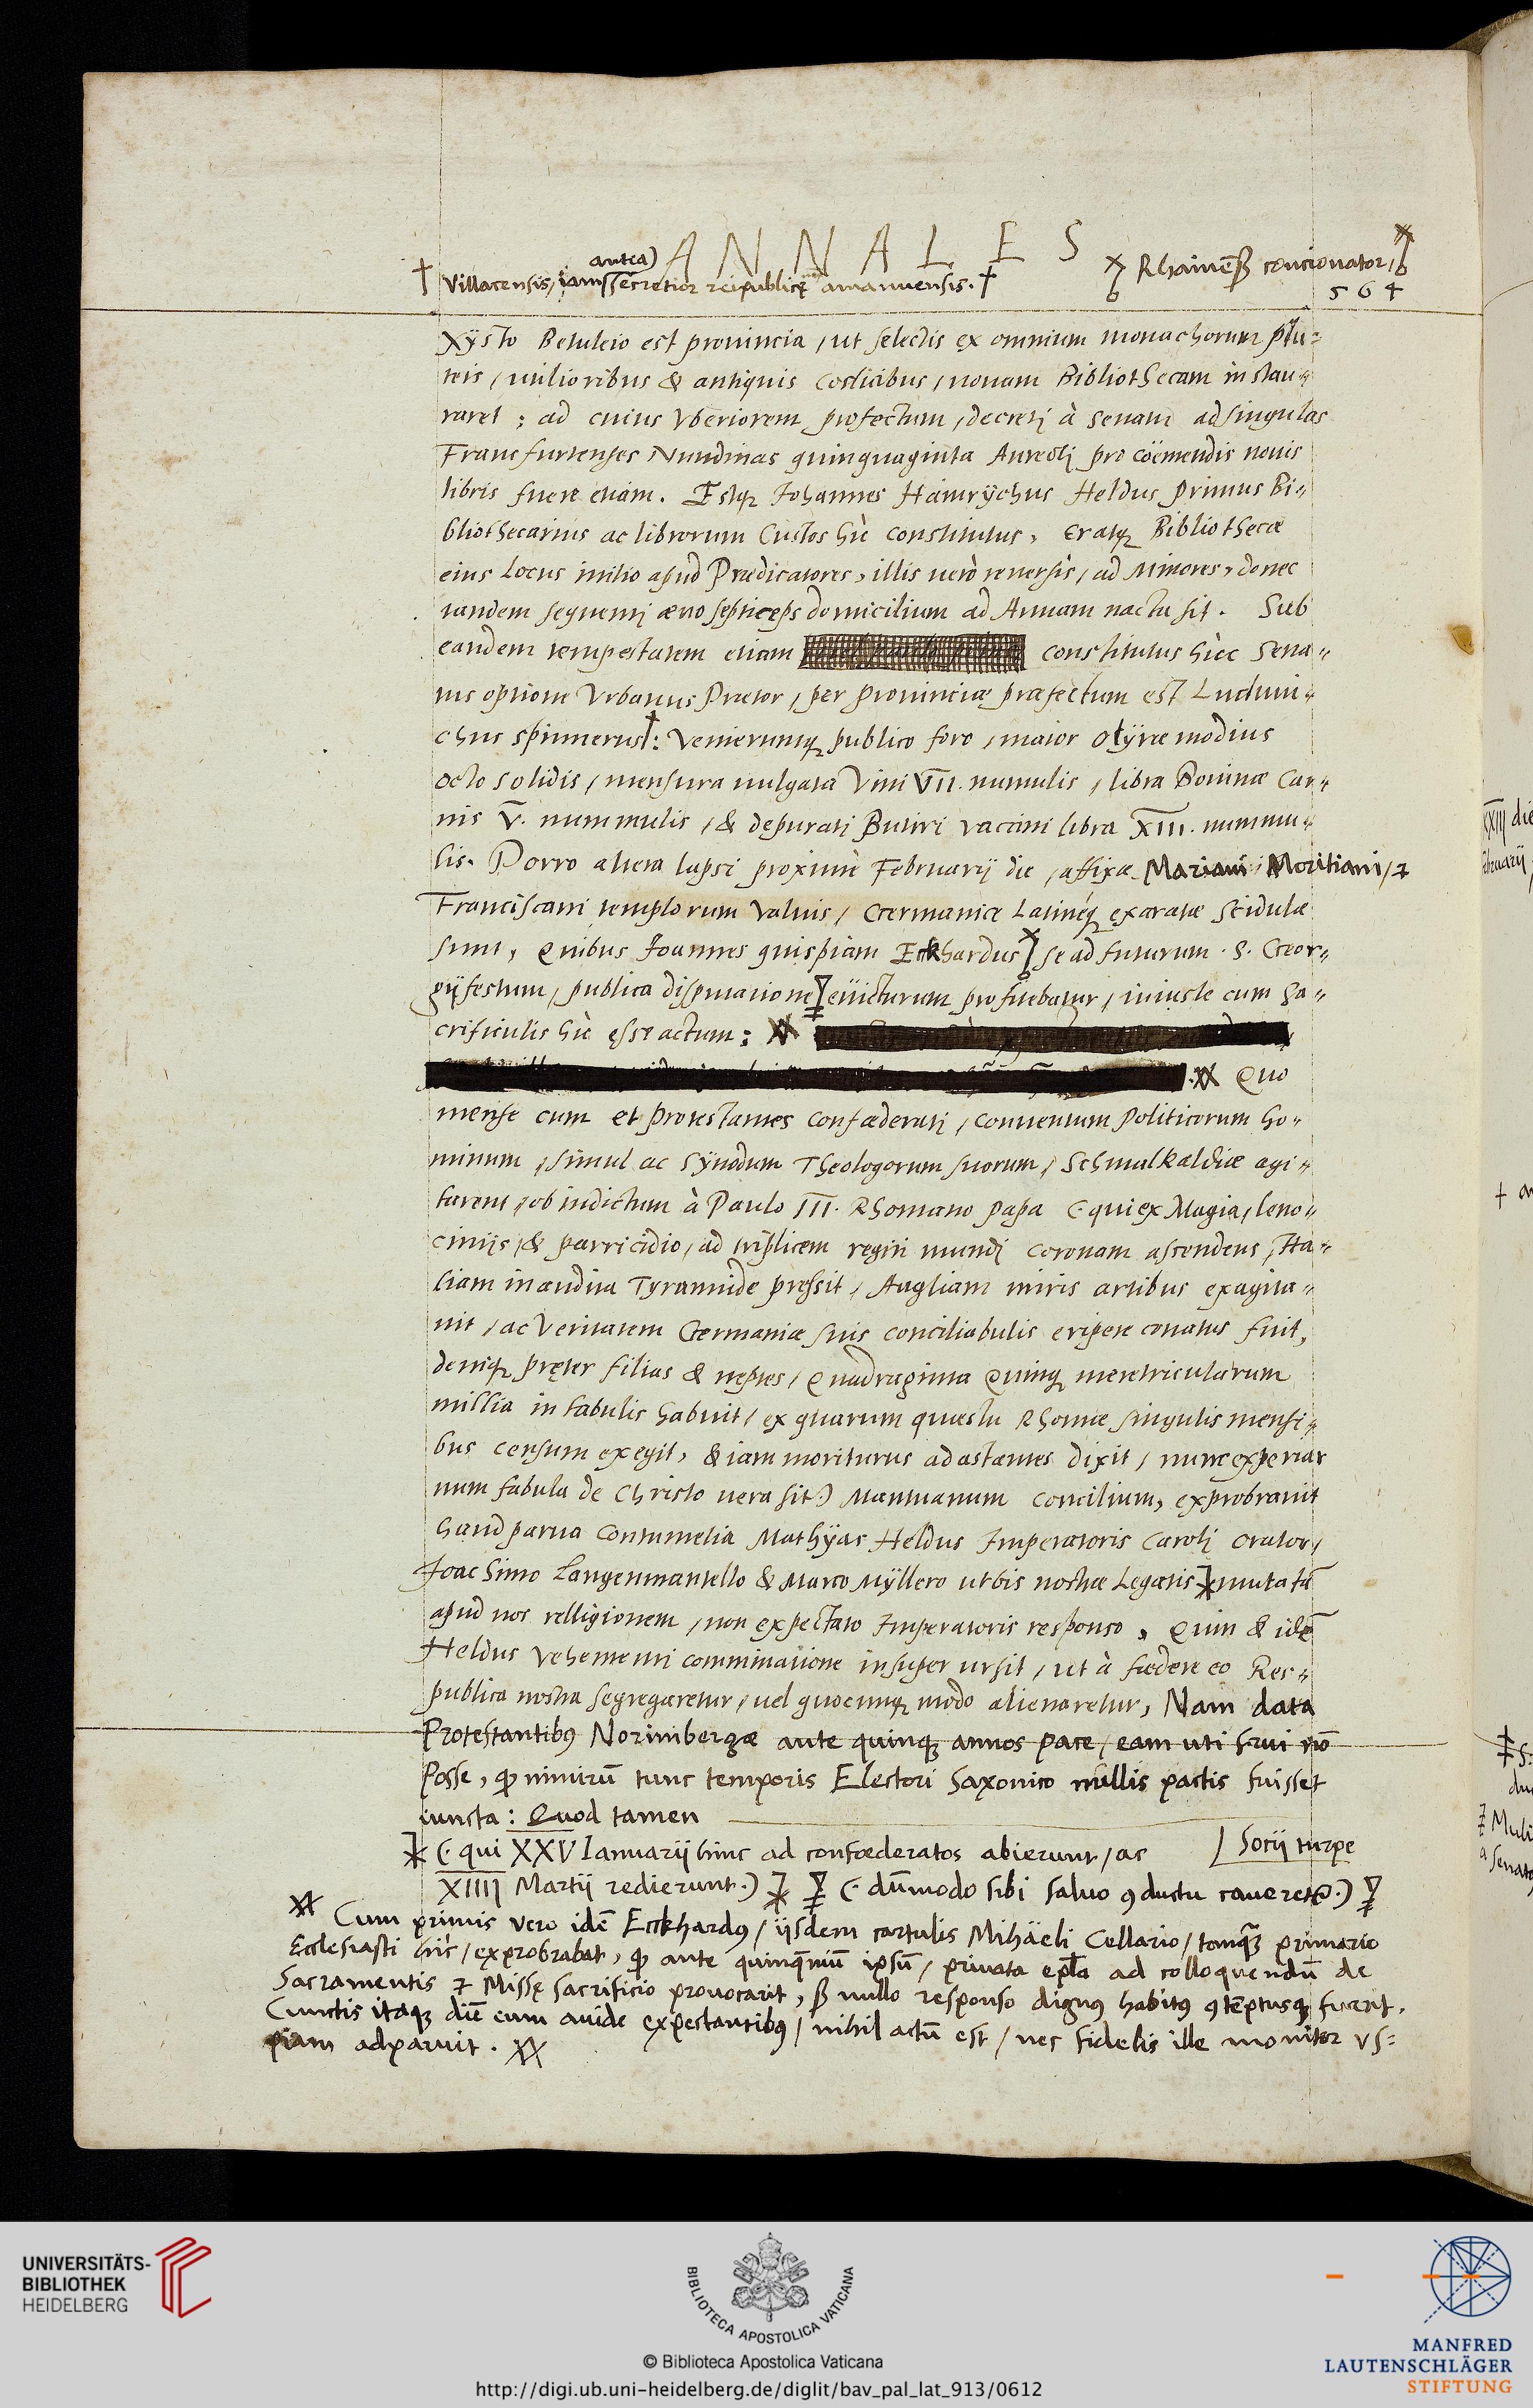 ANNALES
antea)
† Villacensis, iam secretior reipublicę amanuensis. †
Rhainēß concionator,
564
Xÿsto Betuleio est prouincia, ut selectis ex omnium monachorum plu=
teis, utilioribus & antiquis Codicibus, nouam Bibliothecam instau=
raret; ad cuius vberiorem profectum, decreti à Senatu ad singulas
Francfurtenses Nundinas quinquaginta Aureoli pro coëmendis nouis
libris fuere etiam. Estq; Johannes Hainrÿchus Heldus primus Bi=
bliothecarius ac librorum Custos hic constitutus, Eratq; Bibliothecæ
eius Locus initio apud Prædicatores, illis verò reuersis, ad Minores, donec
tandem sequenti æuo septiceps domicilium ad Annam nacta sit. Sub
eandem tempestatem etiam constitutus hic Sena=
tus optione Vrbanus Prætor, per prouinciæ præfectum est Ludoui=
chus spinnerus†: Venieruntq; publico foro, maior olÿræ modius
octo solidis, mensura uulgata Vini VII. numulis, libra Bouinæ Car=
nis V. nummulis, & depurati Butiri vaccini libra XIII. nummu=
lis. Porro altera lapsi proximè Februarij die, affixæ Mariani, Moritiani, &
Franciscani templorum Valuis, Germanice Latineq; exaratæ Scidulæ
sunt, Quibus Joannes quispiam Eckhardus se ad futurum S. Geor=
gij festum, publica disputatione euicturum profitebatur, iniuste cum sa=
crificulis hic esse actum:
Quo
mense cum et protestantes confœderati, conuentum politicorum ho=
minum, simul ac Sÿnodum Theologorum suorum, Schmalkaldiæ agi=
tarent, ob indictum à Paulo III. Rhomano papa (qui ex Magia, leno=
cinijs, & parricidio, ad triplicem regni mundi coronam ascendens, Ita=
liam inaudita Tyrannide pressit, Angliam miris artibus exagita=
uit, ac Veritatem Germaniæ suis conciliabulis eripere conatus fuit,
deniq; pręter filias & neptes, Quadraginta Quinq; meretricularum
millia in tabulis habuit, ex quarum quæstu Rhomæ singulis mensi=
bus censum exegit, & iam moriturus ad astantes dixit, nunc experiar
num fabula de Christo uera sit.) Mantuanum concilium, exprobrauit
haud parua Contumelia Mathÿas Heldus Imperatoris Caroli orator,
Joachimo Langenmantello & Marco Mÿllero urbis nostræ Legatis mutatā
apud nos relligionem, non expectato Imperatoris responso, Quin & idē
Heldus vehementi comminatione insuper ursit, ut à fœdere eo Res=
publica nostra segregaretur, uel quocunq; modo alienaretur, Nam data
Protestantibꝰ Norimbergæ ante quinq; annos pace, eam uti frui nō
Posse, qꝫ nimirū tunc temporis Electori Saxonico nullis pactis fuisset
iuncta: Quod tamen
(qui XXV Ianuarij hinc ad confœderatos abierunt, ac
Socij turpe
XIIII Martij redierunt.) (dūmodo sibi saluo ꝯductu caueretꝰ.)
Cum primis vero idē Eckhardꝰ, ijsdem cartulis Mihäeli Cellario, tamqꝫ primario
Ecclesiasti hic, exprobrabat, qꝫ ante quinq̄niū ipsū, priuata epl̄a ad colloquendū de
Sacramentis & Missę sacrificio prouocarit, ß nullo responso dignꝰ habitꝰ ꝯtēptusqꝫ fuerit.
Cunctis itaqꝫ diē eum auide expectantibꝰ, nihil actū est, nec fidelis ille monitor vs=
piam adparuit.
XXIII die
Februarij
UNIVERSITÄTS-
BIBLIOTHEK
HEIDELBERG
BIBLIOTECA APOSTOLICA VATICANA
© Biblioteca Apostolica Vaticana
http://digi.ub.uni-heidelberg.de/diglit/bav_pal_lat_913/0612
MANFRED
LAUTENSCHLÄGER
STIFTUNG